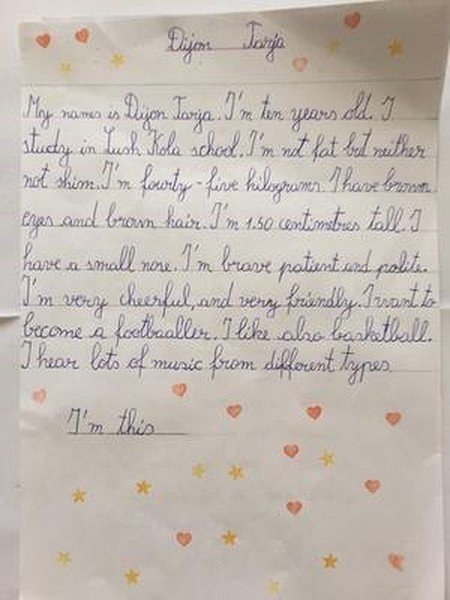 Dijon Tarja
My names is Dijon Tarja. I'm ten years old. I
study in Lush Kola school. I'm not fat but neither
not shim. I'm fourty-five kilograms. I have brown
eyes and brown hair. I'm 1.50 centimetres tall. I
have a small nose. I'm brave patient and polite.
I'm very cheerful, and very friendly. I want to
become a footbaaller. I like also basketball.
I hear lots of music from different types
I'm this